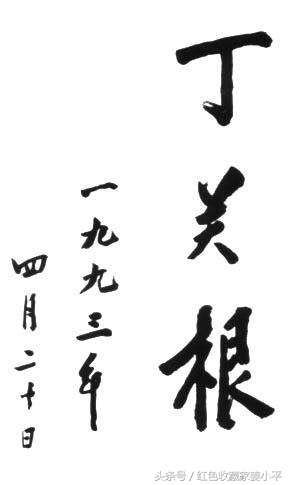 丁关根
一九九三年
四月二十日
头条号／红色收藏家姜小平